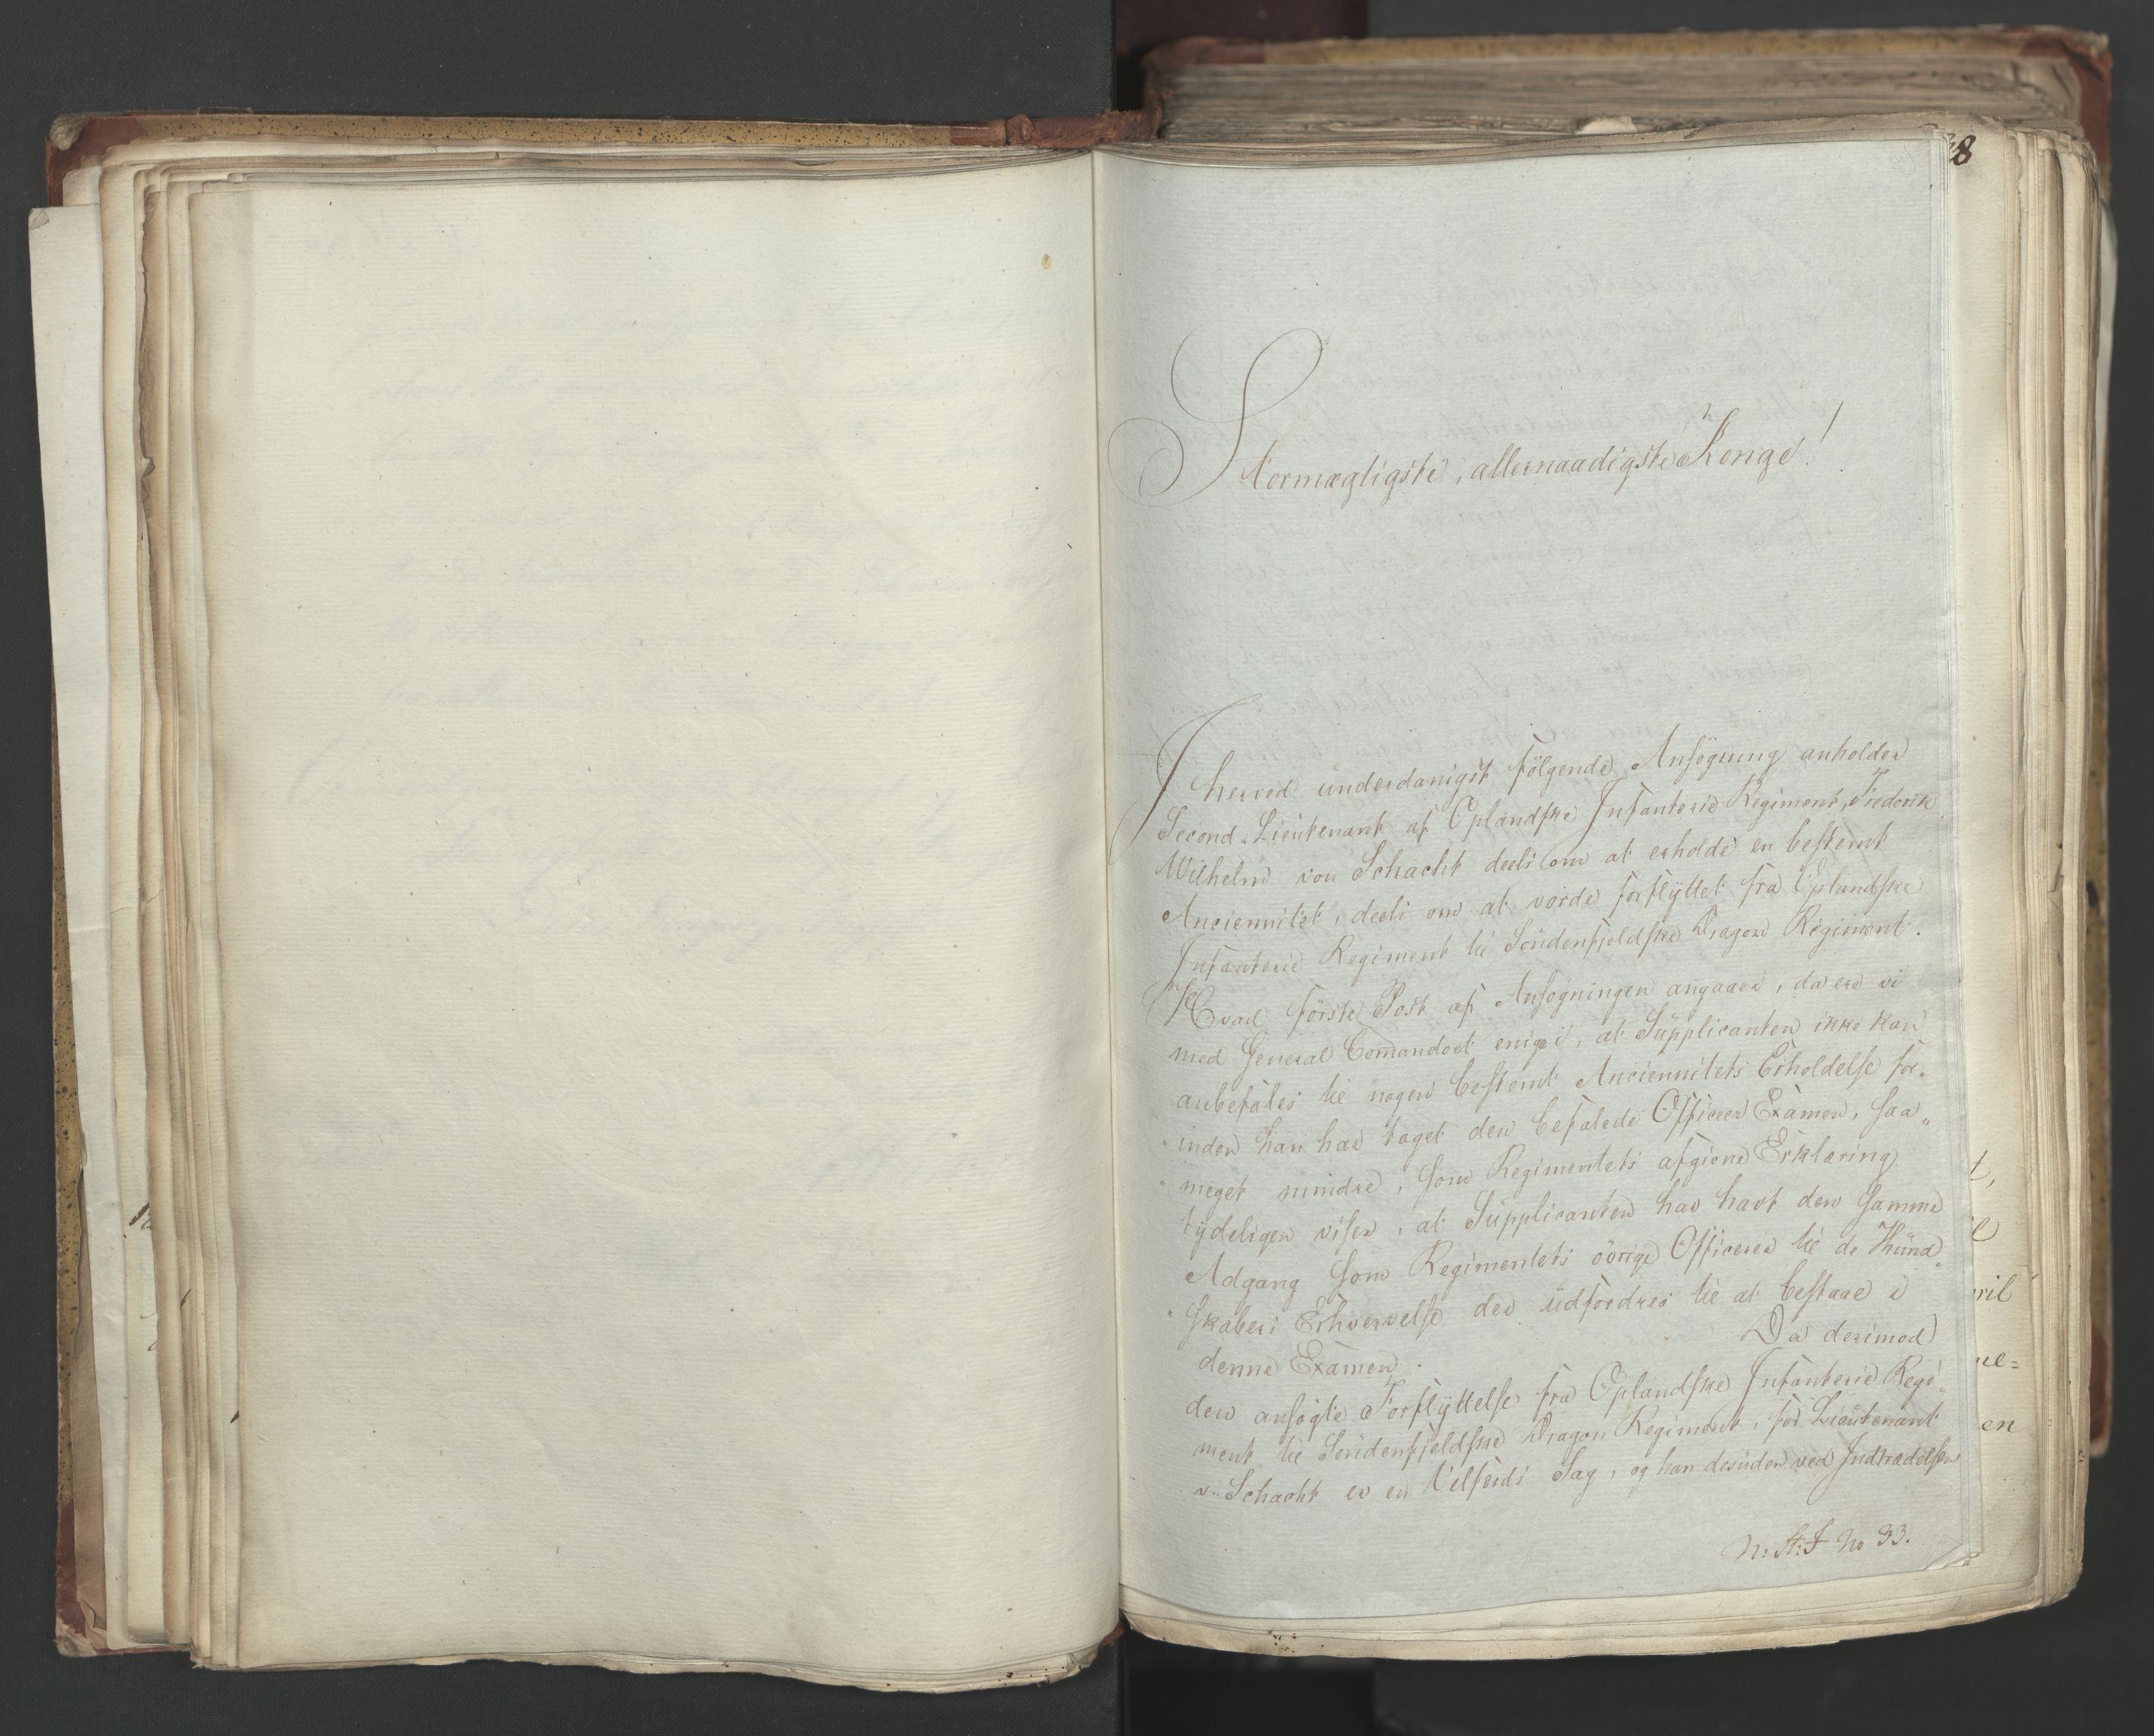 Stormægtigste, allernaadigste Konge!
I herved underdanigst følgende Ansøgning anholder
Second-Lieutenant af Oplandske Infanterie Regiment, Frederik
Wilhelm von Schacht deels om at erholde en bestemt
Anciennitet, deels om at vorde forflÿttet fra Oplandske
Infanterie Regiment til Søndenfjeldske Dragon Regiment.
Hvad første Post af Ansøgningen angaaer, da ere vi
med General Comandoet enige i, at Supplicanten ikke kan
anbefales til nogen bestemt Anciennitets Erholdelse for„
„inden han har taget den befalede Officeer Examen, saa„
„meget mindre, som Regimentets afgivne Erklæring
tÿdeligen viser, at Supplicanten har havt den samme
Adgang som Regimentets øvrige Officerer til de Kund„
„skabers Erhvervelse der udfordres til at bestaae i
denne Examen.
Da derimod
den ansøgte Forflÿttelse fra Oplandske Infanterie Regi„
ment til Søndenfjeldske Dragon Regiment, for Lieutenant
v. Schacht er en Velferds Sag, og han desuden ved Indtrædelsen
N: St: I No 33.